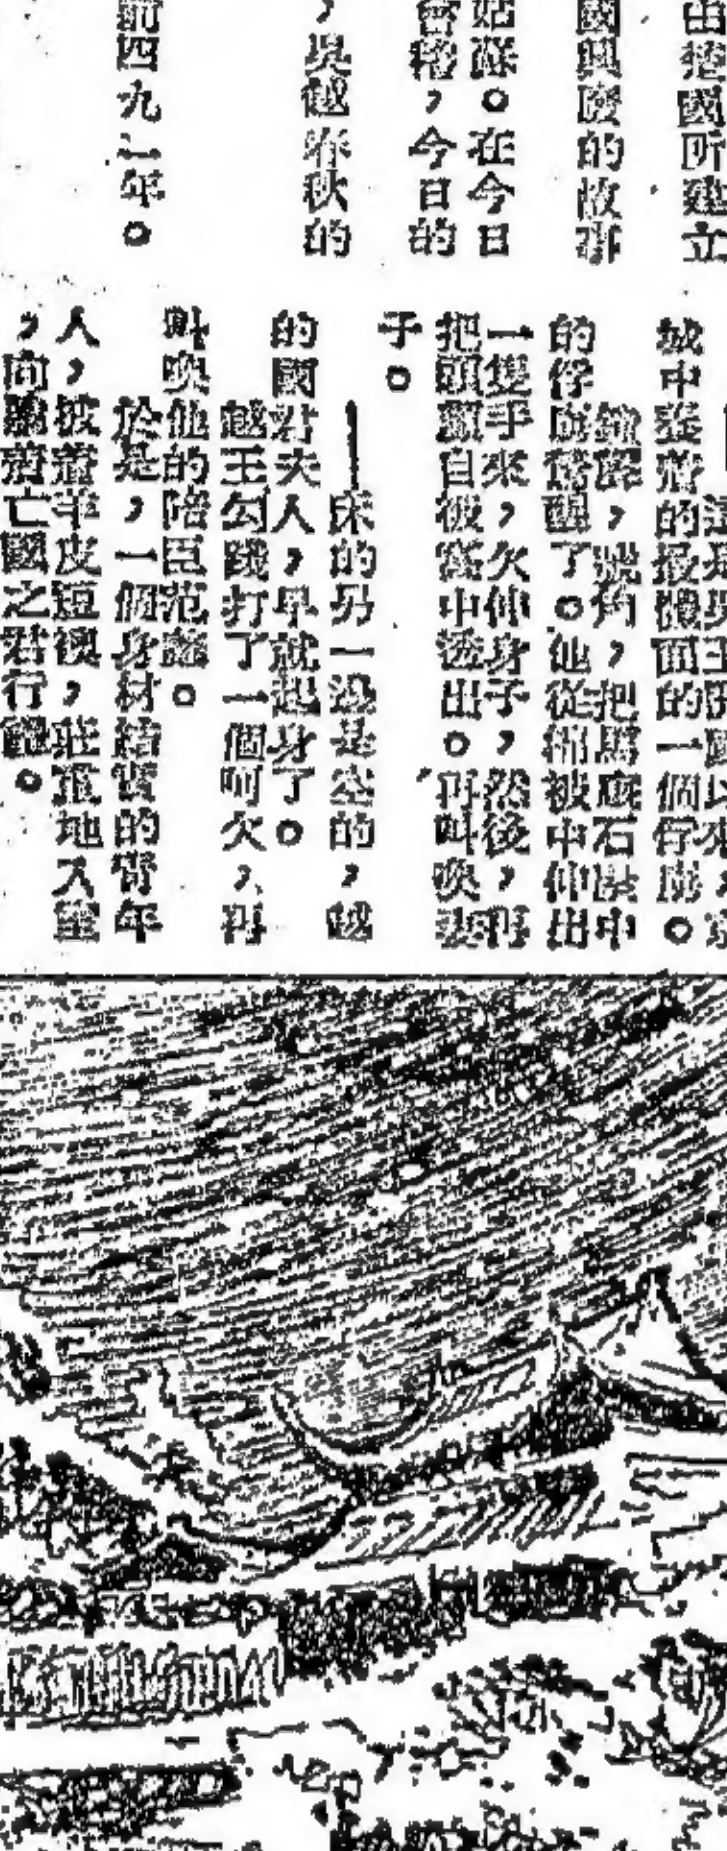 由楚國所建立
國興廢的故事
姑蘇。在今日
會稽,今日的
,吳越春秋的
前四九一年。
城中委靡的最體面的一個俘虜。
鐘聲,號角,把馬廄石獄中
的俘虜驚醒了。他從綿被中伸出
一隻手來,欠伸身子,然後,再
把頭顱自被窩中透出。再叫喚妻
子。
——床的另一邊是空的,越
的國君夫人,早就起身了。
越王勾踐打了一個呵欠,再
叫喚他的陪臣范蠡。
於是,一個身材結實的青年
人,披着羊皮短襖,莊重地入室
,向驕奢亡國之君行禮。